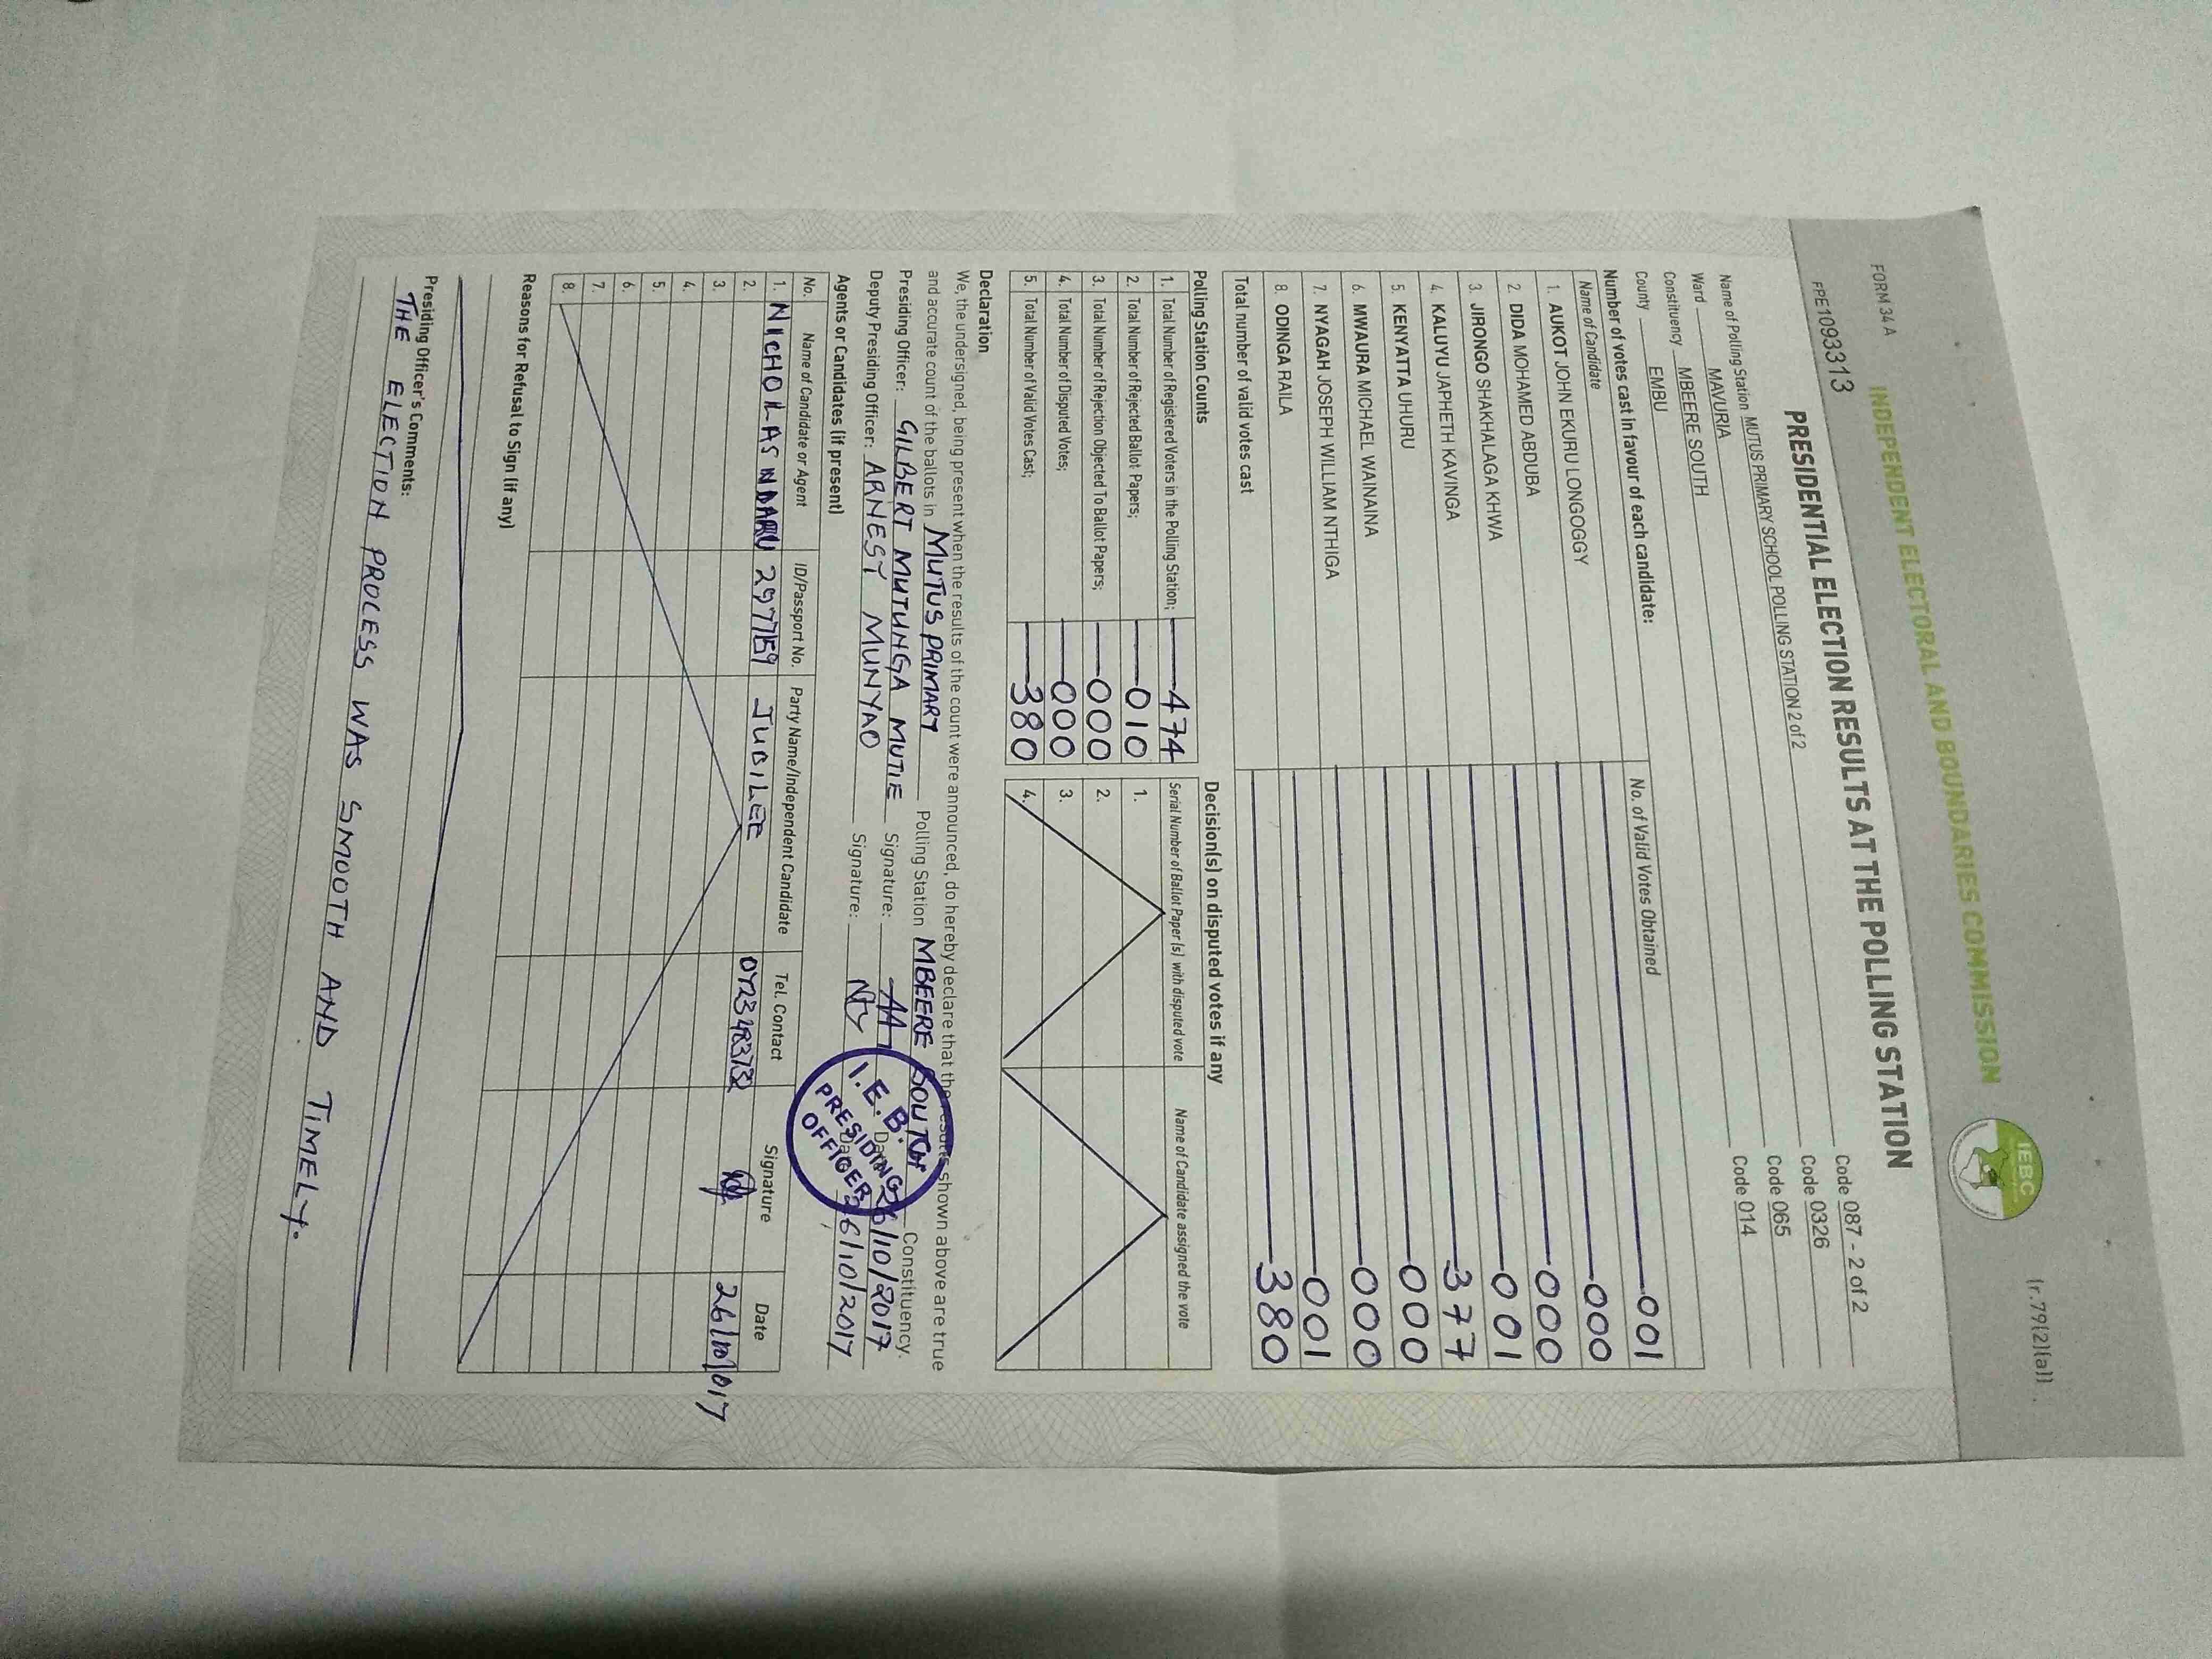 (r.79(2)(a))
FORM 34 A
INDEPENDENT ELECTORAL AND BOUNDARIES COMMISSION
IEBC
FPE1093313
PRESIDENTIAL ELECTION RESULTS AT THE POLLING STATION
Name of Polling Station MUTUS PRIMARY SCHOOL POLLING STATION 2 of 2 Code 087 - 2 of 2
Ward MAVURIA Code 0326
Constituency MBEERE SOUTH Code 065
County EMBU Code 014
Number of votes cast in favour of each candidate:
Name of Candidate No. of Valid Votes Obtained
1. AUKOT JOHN EKURU LONGOGGY 001
2. DIDA MOHAMED ABDUBA 000
3. JIRONGO SHAKHALAGA KHWA 000
4. KALUYU JAPHETH KAVINGA 001
5. KENYATTA UHURU 377
6. MWAURA MICHAEL WAINAINA 000
7. NYAGAH JOSEPH WILLIAM NTHIGA 000
8. ODINGA RAILA 001
Total number of valid votes cast 380
Polling Station Counts
1. Total Number of Registered Voters in the Polling Station; 474
2. Total Number of Rejected Ballot Papers; 010
3. Total Number of Rejection Objected To Ballot Papers; 000
4. Total Number of Disputed Votes; 000
5. Total Number of Valid Votes Cast; 380
Decision(s) on disputed votes if any
Serial Number of Ballot Paper (s) with disputed vote Name of Candidate assigned the vote
1.
2.
3.
4.
Declaration
We, the undersigned, being present when the results of the count were announced, do hereby declare that the results shown above are true
and accurate count of the ballots in MUTUS PRIMARY Polling Station MBEERE SOUTH Constituency.
Presiding Officer: GILBERT MUTUNGA MUTIE Signature: Date 26/10/2017
Deputy Presiding Officer: ARNEST MUNYAO Signature: Date 26/10/2017
I.E.B.
PRESIDING
OFFICER
Agents or Candidates (if present)
No. Name of Candidate or Agent ID/Passport No. Party Name/Independent Candidate Tel. Contact Signature Date
1. NICHOLAS NDARU JUBILEE
2.
3.
4.
5.
6.
7.
8.
Reasons for Refusal to Sign (if any)
Presiding Officer's Comments:
THE ELECTION PROCESS WAS SMOOTH AND TIMELY.